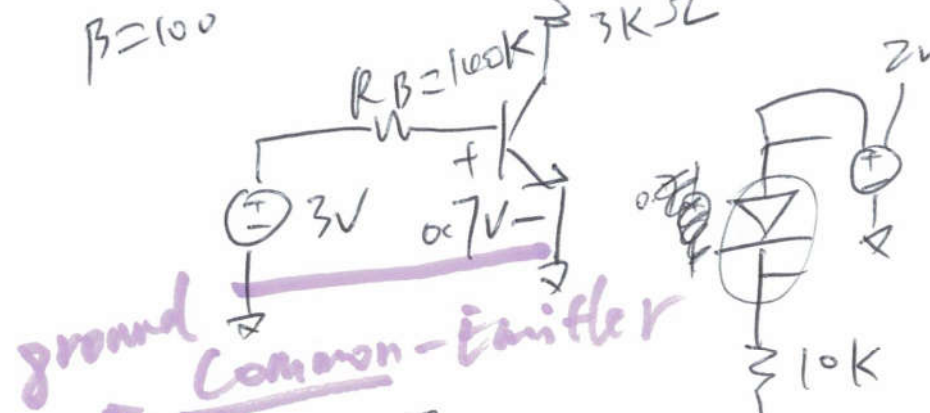 β=100
3KΩ
RB=100K
2V
+
3V
0.7V-
ground
Common-Emitter
10K